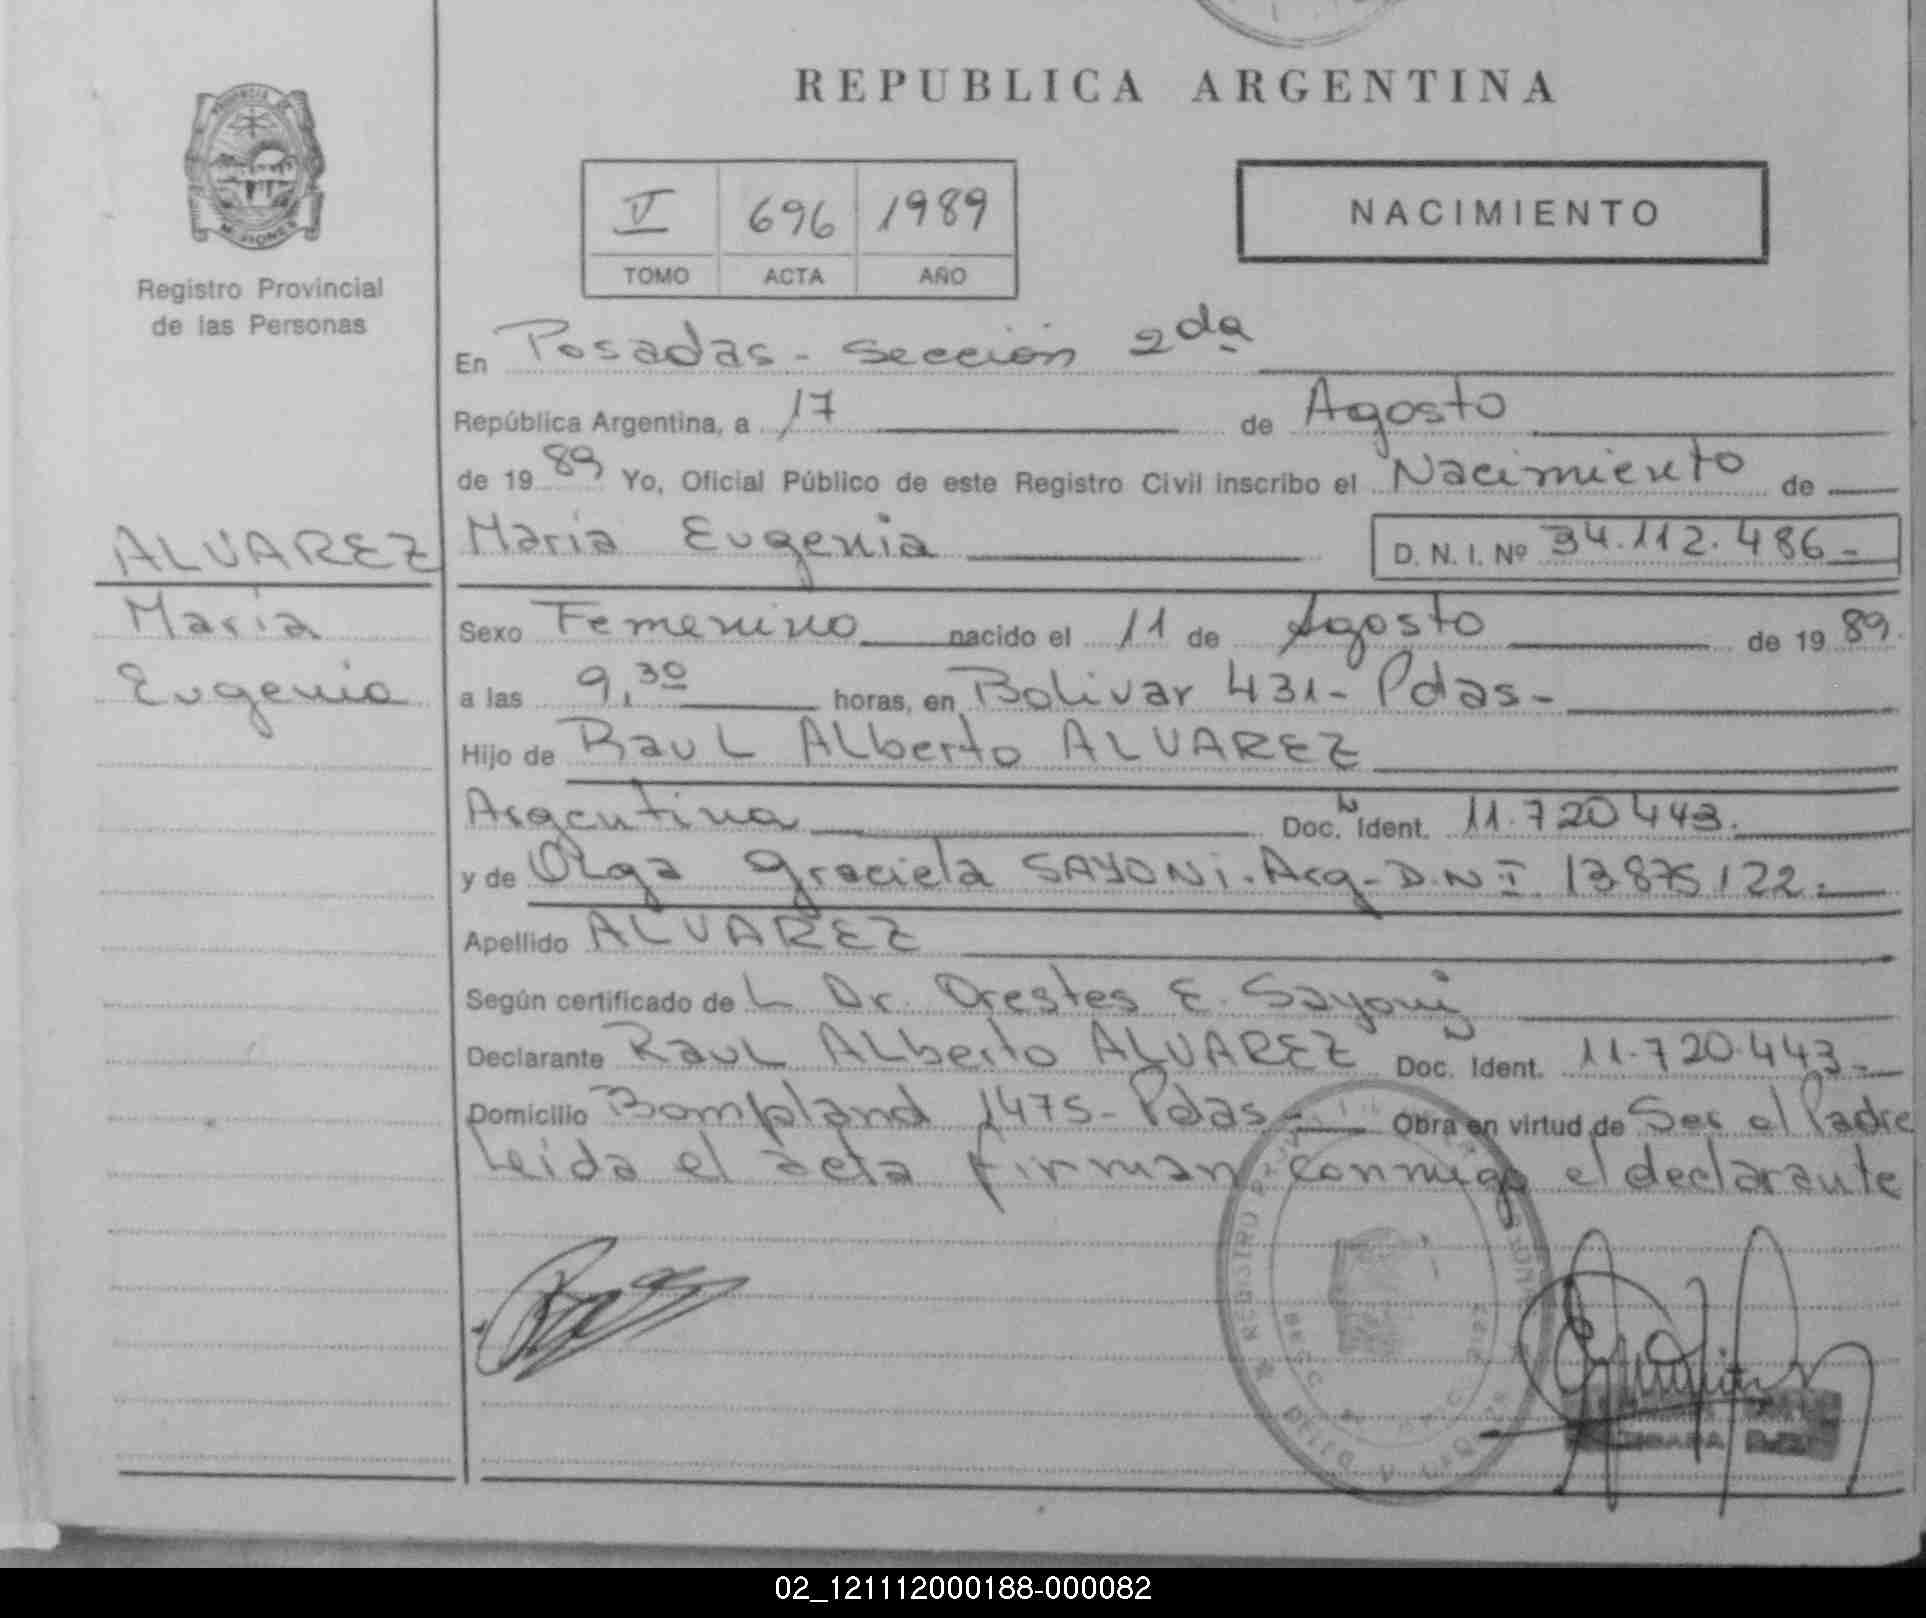 REPUBLICA ARGENTINA
PROVINCIA DE
MISIONES
Registro Provincial
de las Personas
V 696 1989
TOMO ACTA AÑO
NACIMIENTO
En Posadas - Sección 2da
República Argentina, a 17 de Agosto
de 19 89 Yo, Oficial Público de este Registro Civil inscribo el Nacimiento de
ALVAREZ
María
Eugenia
María Eugenia D. N. I. Nº 34.112.486-
Sexo Femenino nacido el 11 de Agosto de 19 89.
a las 9,30 horas, en Bolivar 431- Pdas-
Hijo de Raul Alberto ALVAREZ
Argentina Doc. Ident. 11.720443.
y de Olga Graciela SAYONi. Arg- D.N.I. 13875122.
Apellido ALVAREZ
Según certificado de L Dr. Orestes E. Sayoni
Declarante Raul Alberto ALVAREZ Doc. Ident. 11.720.443-
Domicilio Bompland 1475- Pdas- Obra en virtud de Ser el Padre
Leida el acta firman conmigo el declarante
REGISTRO
02_121112000188-000082